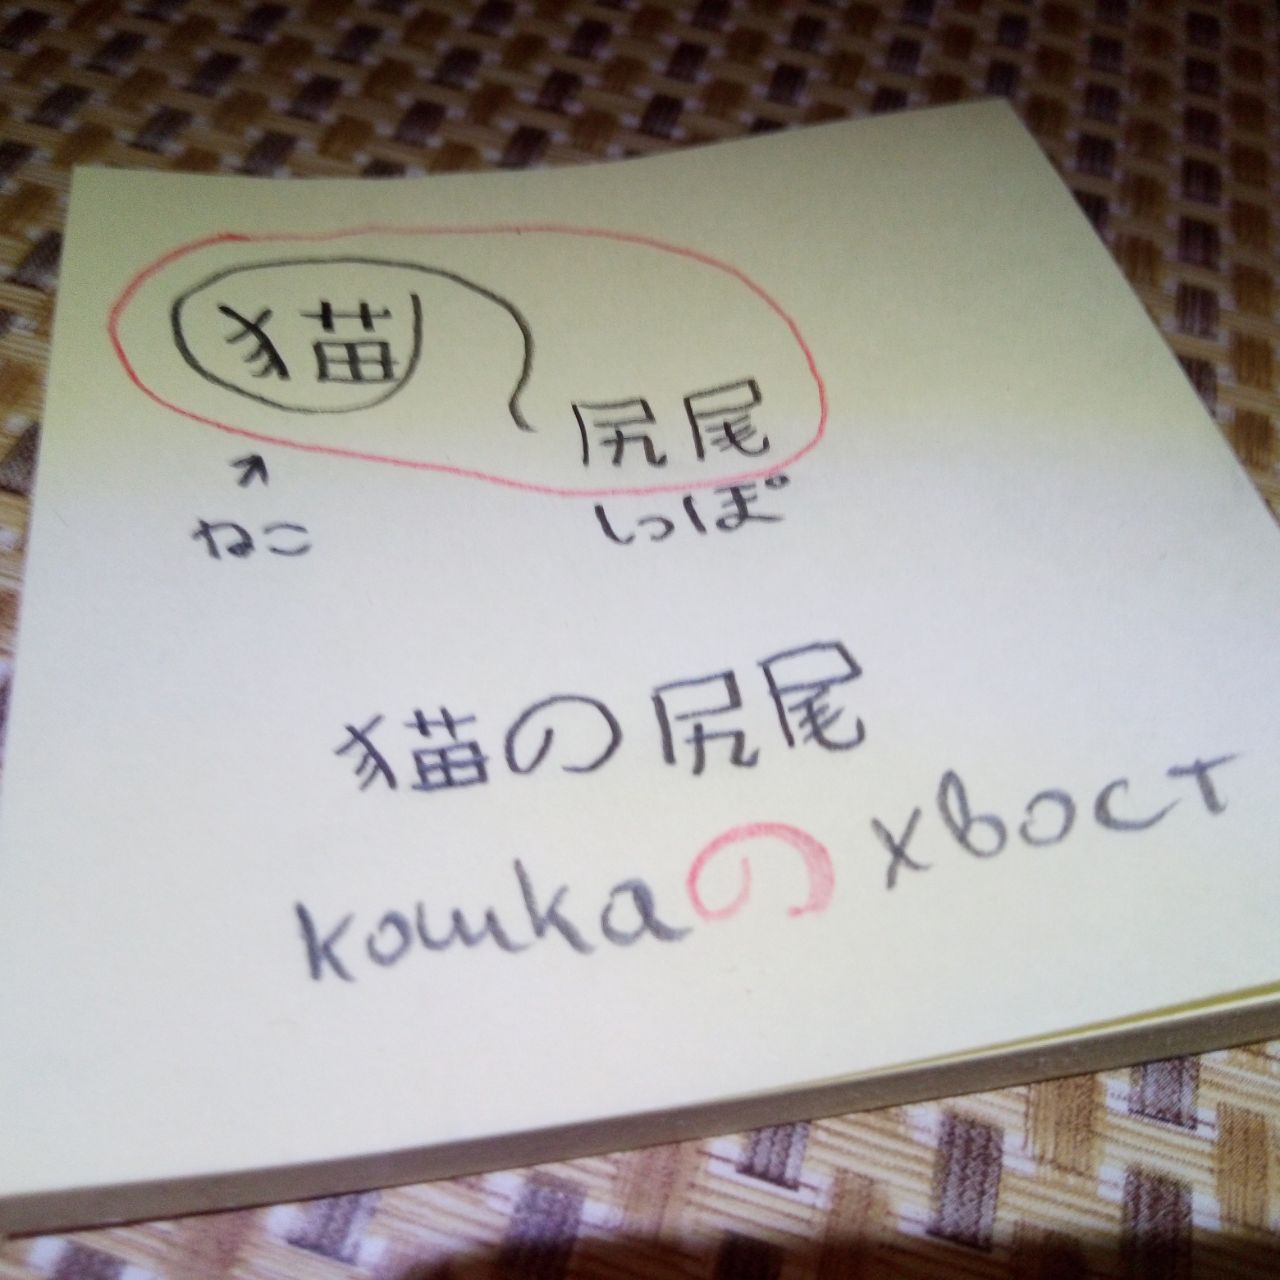 猫
尻尾
ねこ
しっぽ
猫の尻尾
кошкаの хвост